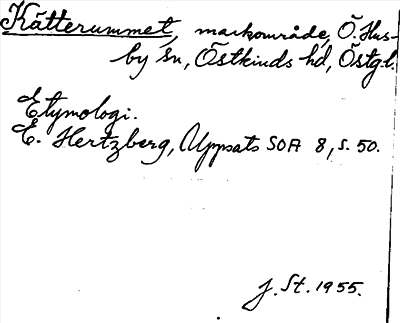 Kätterummet, markområde, Ö. Hus-
by sn, Östkinds hd, Östgl.
Etymologi.
E. Hertzberg, Uppsats SOA 8, s. 50.
J. St. 1955.